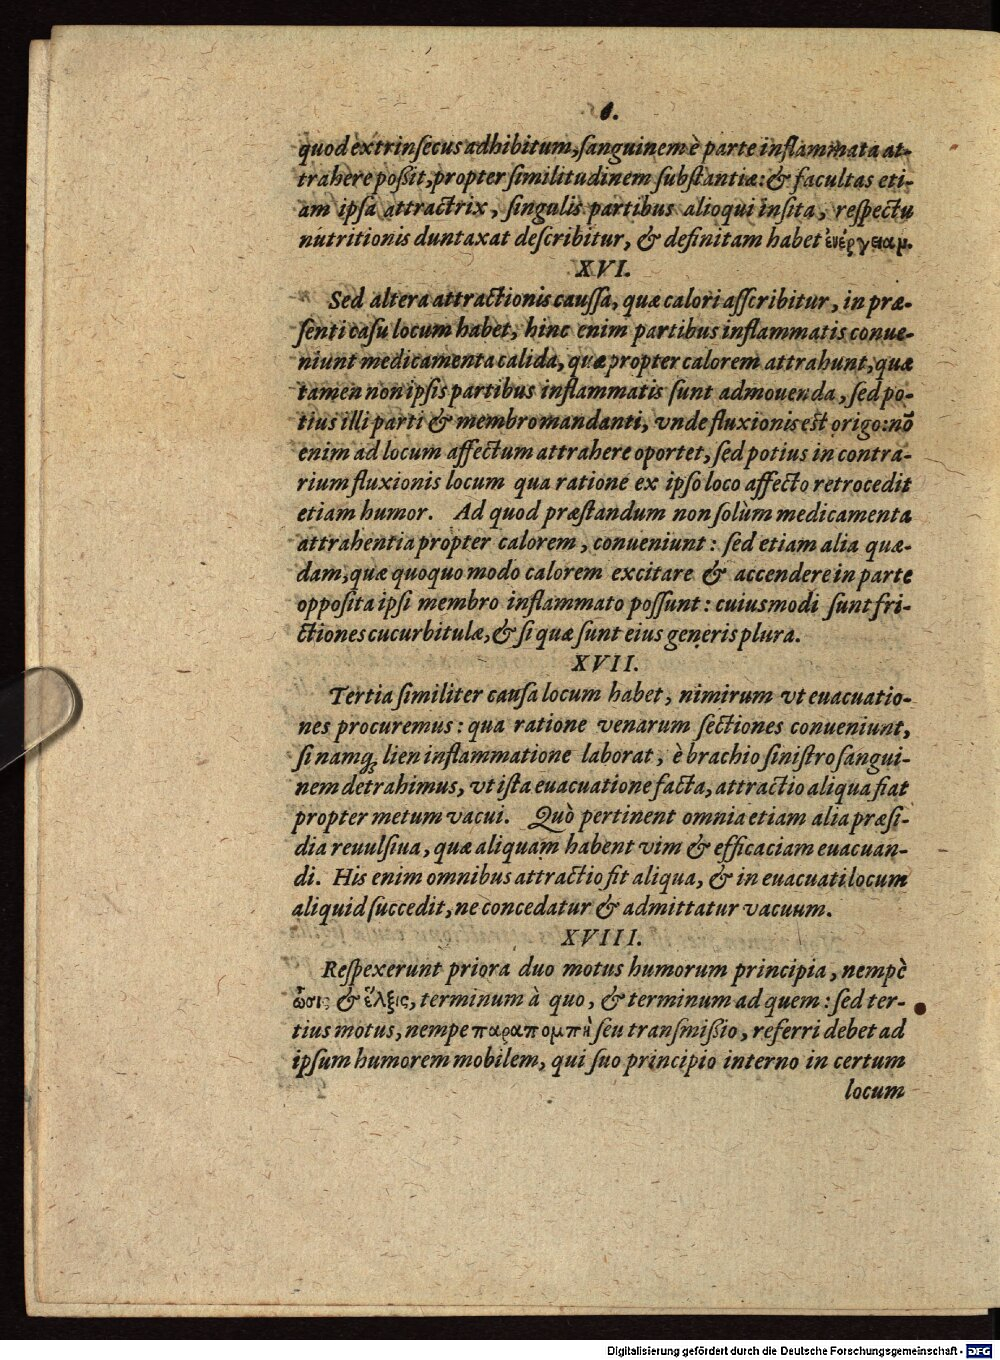 6.
quod extrinſecus adhibitum, ſanguinem è parte inflammata at-
trahere poßit, propter ſimilitudinem ſubſtantiæ: & facultas eti-
am ipſa attractrix, ſingulis partibus alioqui inſita, reſpectu
nutritionis duntaxat deſcribitur, & definitam habet ἐνέργειαμ.
XVI.
Sed altera attractionis cauſſa, quæ calori aſſcribitur, in præ-
ſenti caſu locum habet, hinc enim partibus inflammatis conue-
niunt medicamenta calida, quæ propter calorem attrahunt, quæ
tamen non ipſis partibus inflammatis ſunt admouenda, ſed po-
tius illi parti & membro mandanti, vnde fluxionis est origo: nō
enim ad locum affectum attrahere oportet, ſed potius in contra-
rium fluxionis locum qua ratione ex ipſo loco affecto retrocedit
etiam humor. Ad quod præſtandum non ſolùm medicamenta
attrahentia propter calorem, conueniunt: ſed etiam alia quæ-
dam, quæ quoquo modo calorem excitare & accendere in parte
oppoſita ipſi membro inflammato poſſunt: cuiusmodi ſunt fri-
ctiones cucurbitulæ, & ſi quæ ſunt eius generis plura.
XVII.
Tertia ſimiliter cauſa locum habet, nimirum vt euacuatio-
nes procuremus: qua ratione venarum ſectiones conueniunt,
ſi namq; lien inflammatione laborat, è brachio ſiniſtro ſangui-
nem detrahimus, vt iſta euacuatione facta, attractio aliqua fiat
propter metum vacui. Quò pertinent omnia etiam alia præſi-
dia reuulſiua, quæ aliquam habent vim & efficaciam euacuan-
di. His enim omnibus attractio fit aliqua, & in euacuati locum
aliquid ſuccedit, ne concedatur & admittatur vacuum.
XVIII.
Reſpexerunt priora duo motus humorum principia, nempè
ὦσις & ἕλξις, terminum à quo, & terminum ad quem: ſed ter-
tius motus, nempe παραπομπὴ ſeu tranſmißio, referri debet ad
ipſum humorem mobilem, qui ſuo principio interno in certum
locum
Digitalisierung gefördert durch die Deutsche Forschungsgemeinschaft - DFG